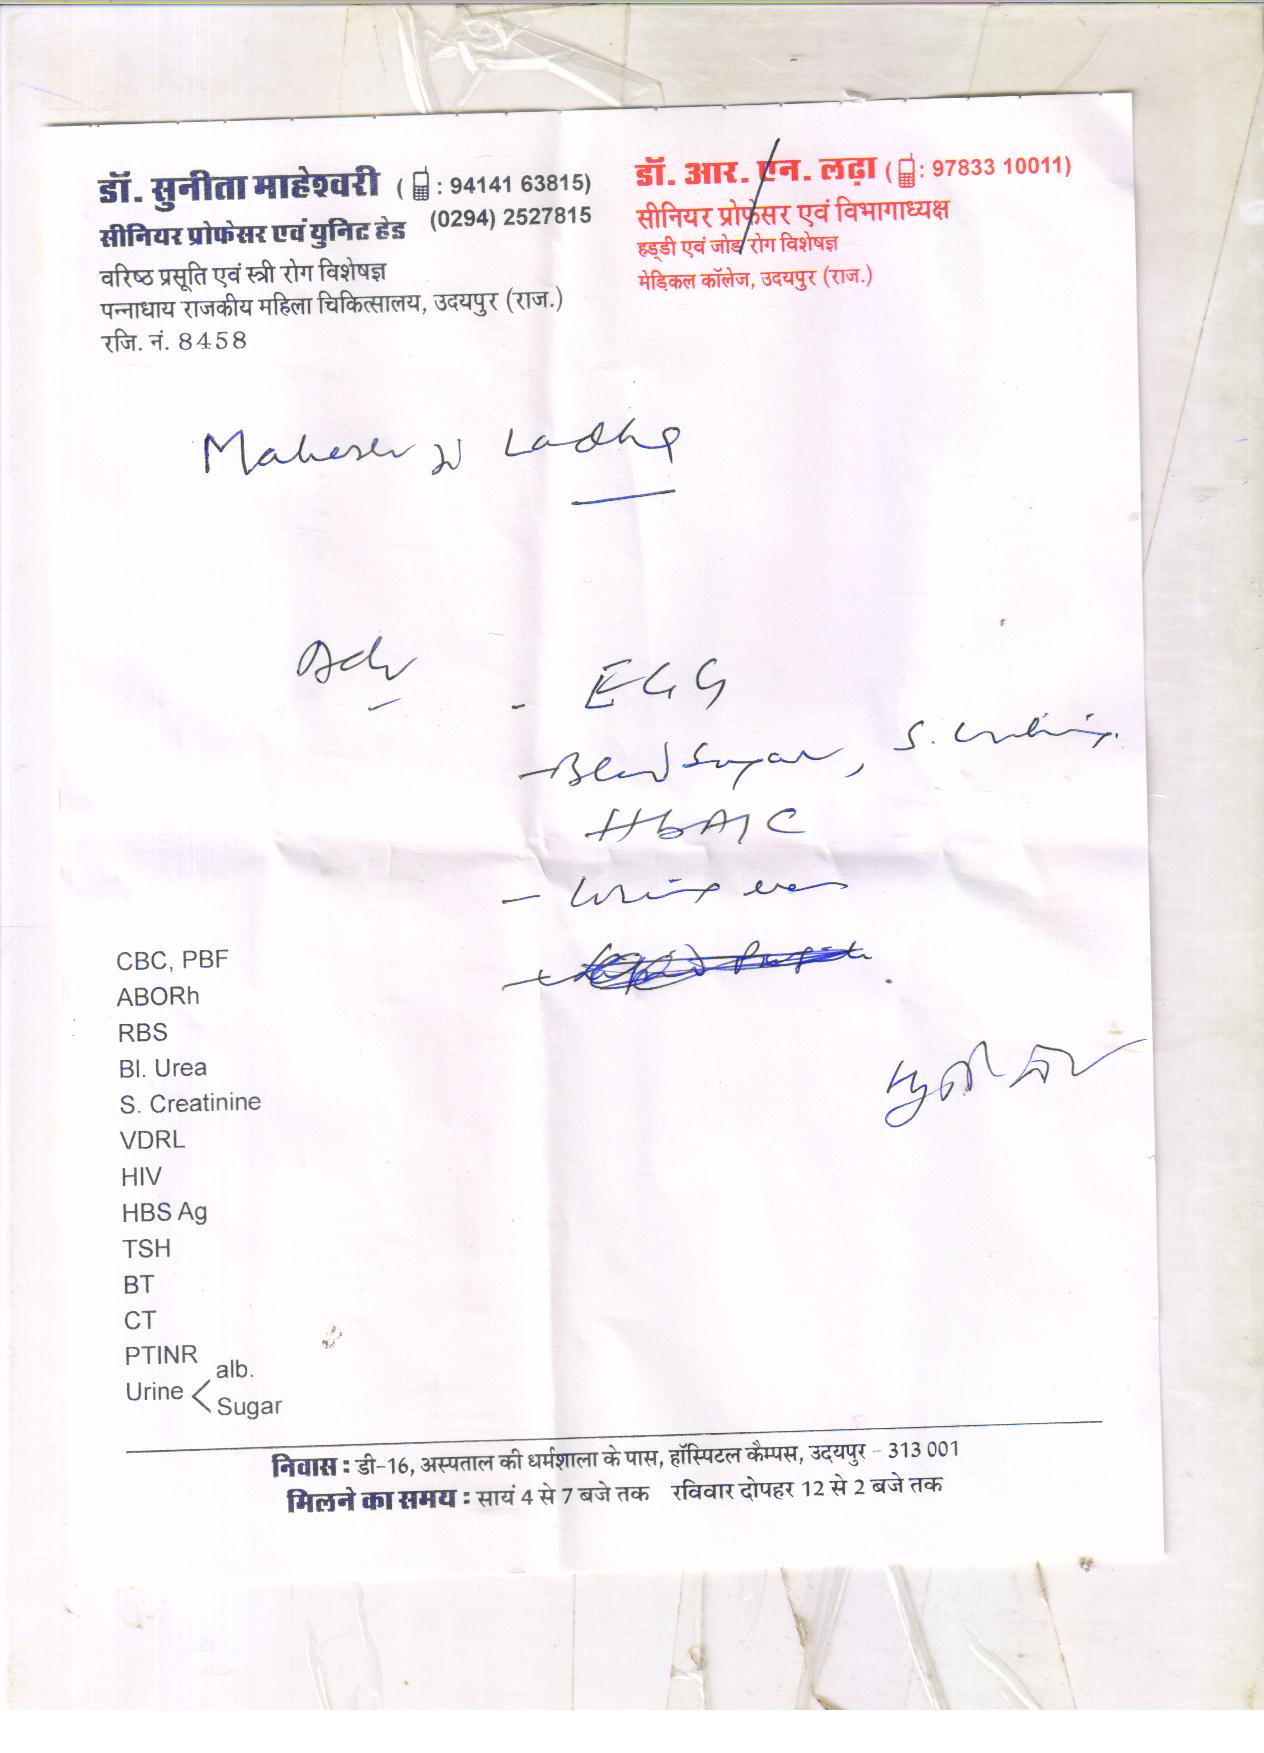 डॉ. सुनीता माहेश्वरी ( : 94141 63815)
सीनियर प्रोफेसर एवं युनिट हेड (0294) 2527815
वरिष्ठ प्रसूति एवं स्त्री रोग विशेषज्ञ
पन्नाधाय राजकीय महिला चिकित्सालय, उदयपुर (राज.)
रजि. नं. 8458
डॉ. आर. एन. लढ़ा ( : 97833 10011)
सीनियर प्रोफेसर एवं विभागाध्यक्ष
हड्डी एवं जोड़ रोग विशेषज्ञ
मेडिकल कॉलेज, उदयपुर (राज.)
Ladha
Adv
- ECG
- Blood Sugar, S.
HbA1C
- Urine
CBC, PBF
ABORh
RBS
Bl. Urea
S. Creatinine
VDRL
HIV
HBS Ag
TSH
BT
CT
PTINR
Urine < alb.
Sugar
निवास : डी-16, अस्पताल की धर्मशाला के पास, हॉस्पिटल कैम्पस, उदयपुर - 313 001
मिलने का समय : सायं 4 से 7 बजे तक रविवार दोपहर 12 से 2 बजे तक